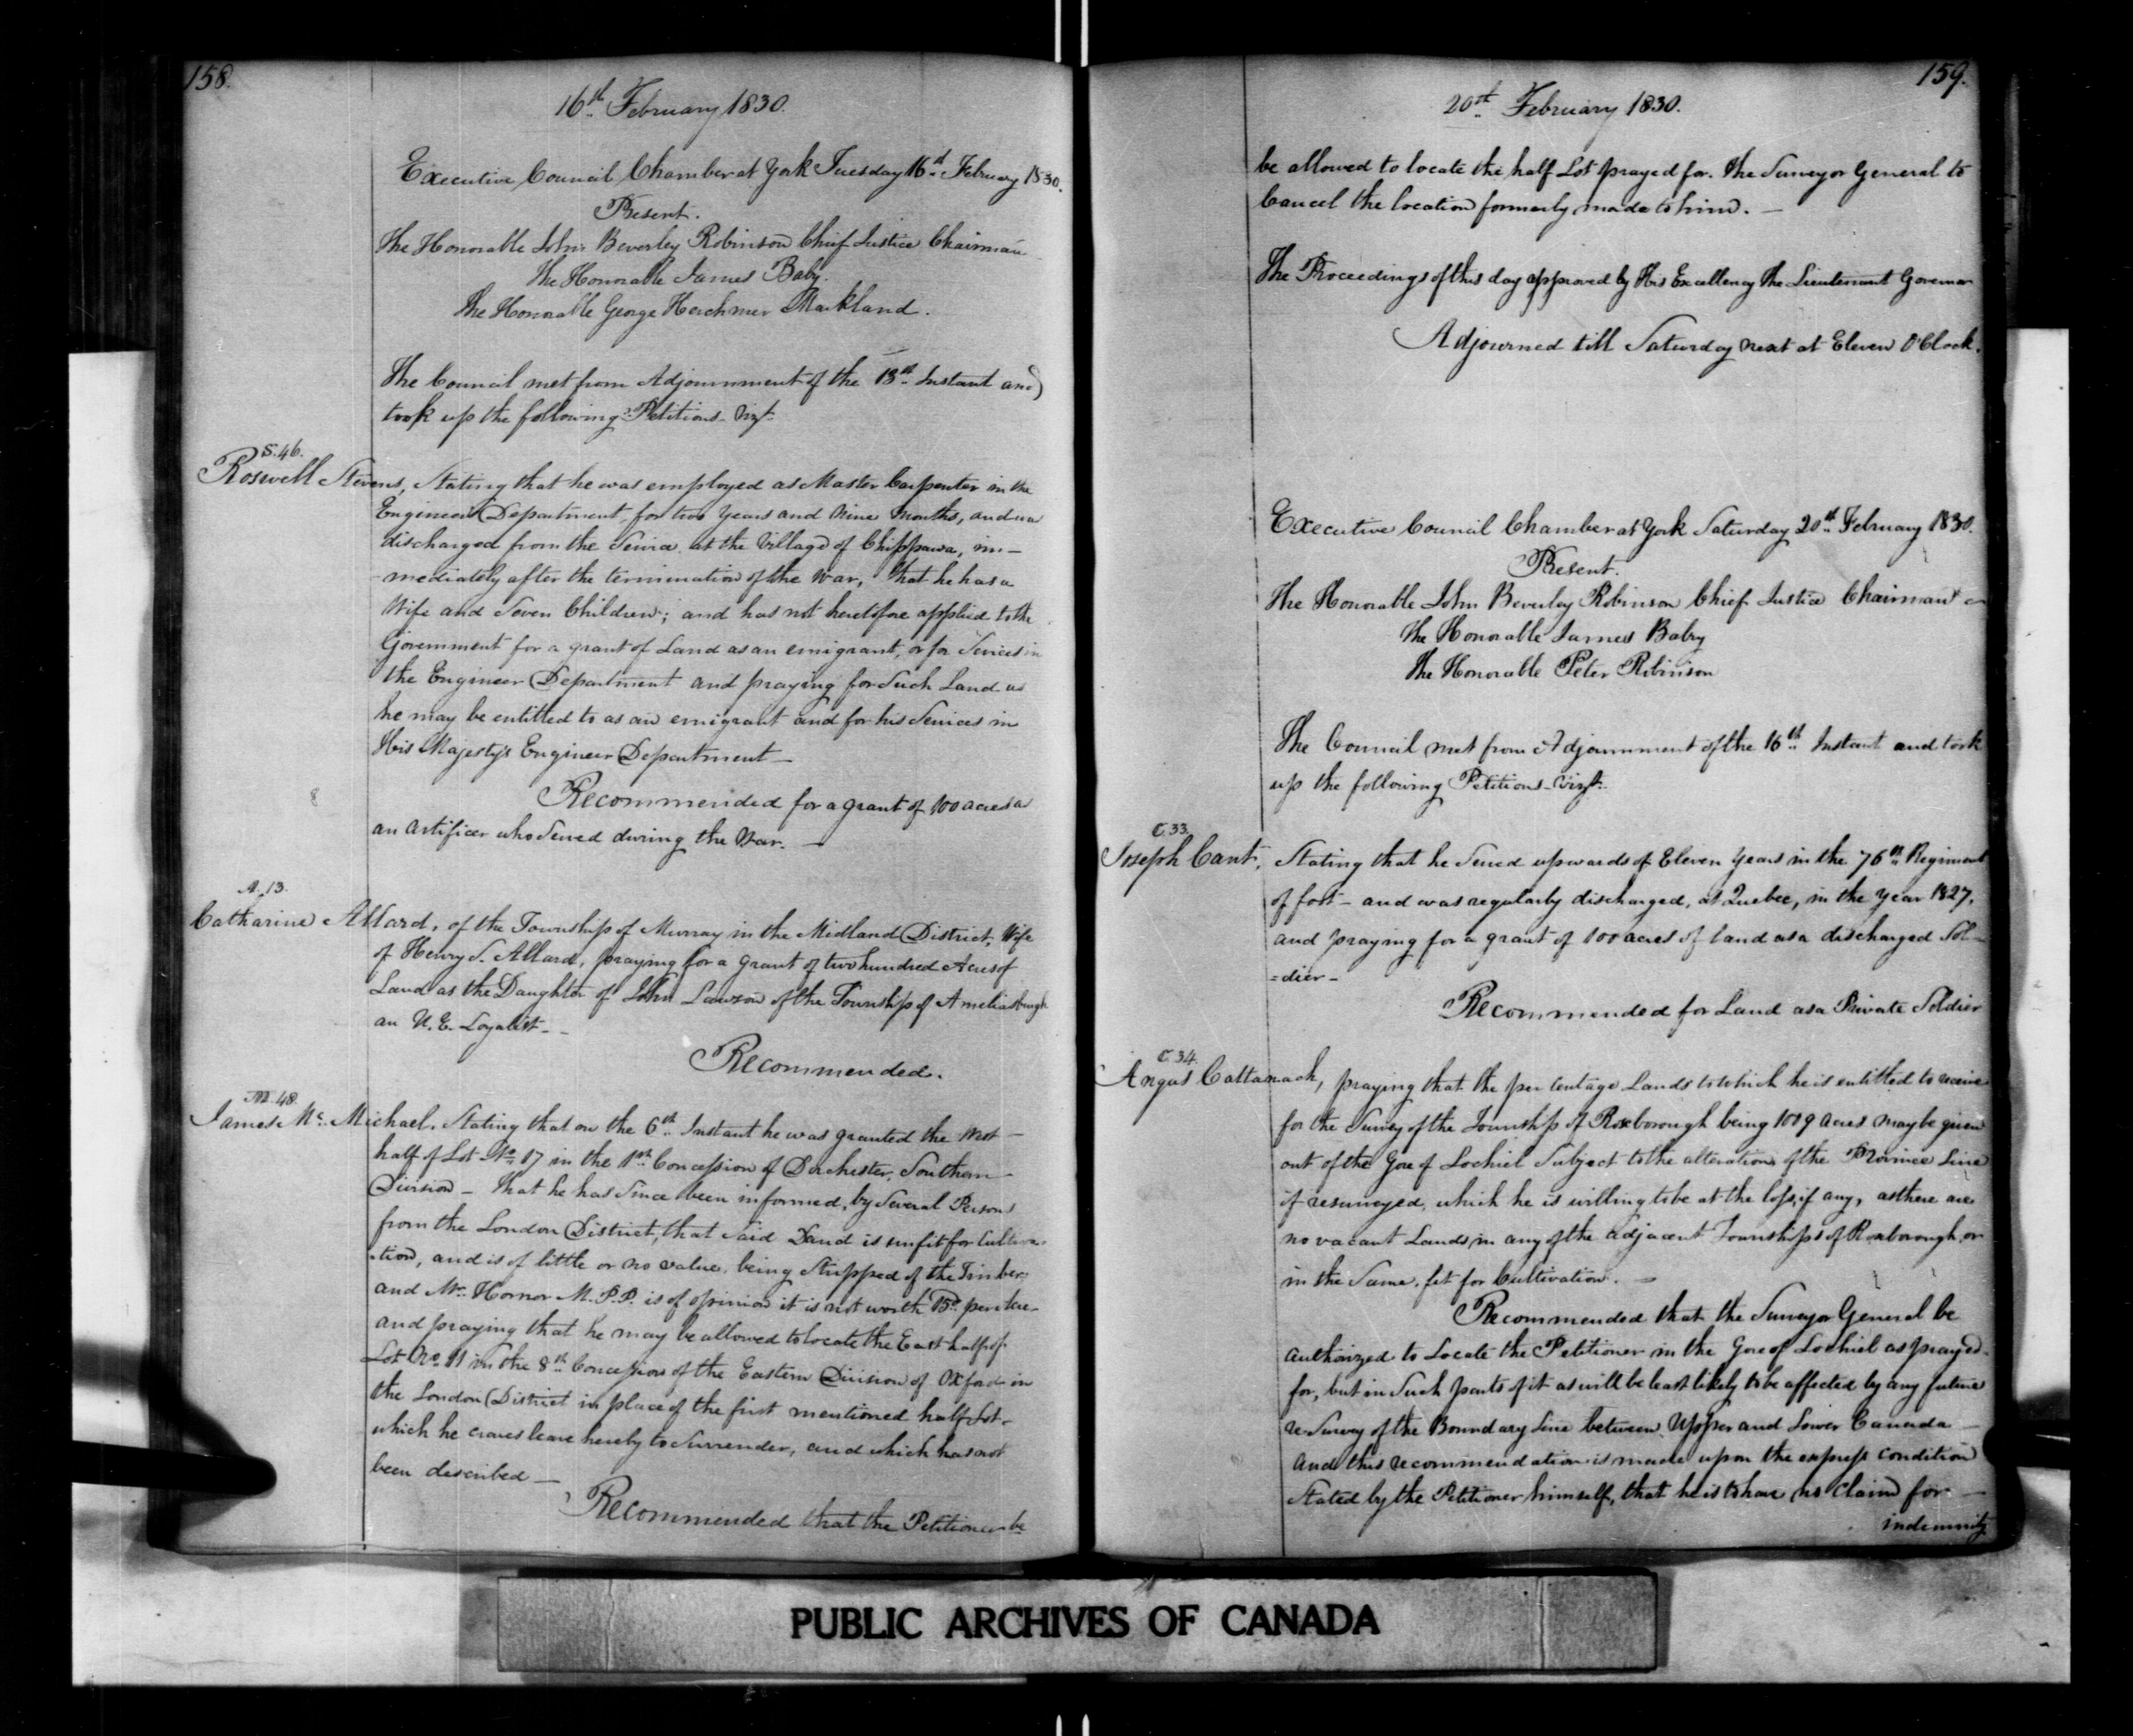 158.
16th February 1830.
Executive Council Chamber at York Tuesday 16th February 1830.
Present.
The Honorable John Beverley Robinson Chief Justice Chairman
The Honorable James Baby.
The Honorable George Herchmer Markland.
The Council met from Adjournment of the 13th Instant and
took up the following Petitions Vizt.
S. 46.
Roswell Stevens, Stating that he was employed as Master Carpenter in the
Engineer Department, for two Years and Nine Months, and was
discharged from the Service at the Village of Chippawa, im-
-mediately after the termination of the War, that he has a
Wife and Seven Children; and has not heretofore applied to the
Government for a grant of Land as an emigrant, or for Services in
the Engineer Department and praying for Such Land as
he may be entitled to as an emigrant and for his Services in
His Majesty's Engineer Department—
Recommended for a grant of 100 acres as
an artificer who Served during the War. —
A. 13.
Catharine Allard, of the Township of Murray in the Midland District, Wife
of Henry S. Allard, praying for a grant of two hundred Acres of
Land as the Daughter of John Lawson of the Township of Ameliasburgh
an U.E. Loyalist—
Recommended.
M. 48.
James Mc. Michael, Stating that on the 6th Instant he was granted the West
half of Lot No. 17 in the 1st Concession of Dorchester, Southern
Division — that he has Since been informed, by Several Persons
from the London District, that Said Land is unfit for Cultiva-
-tion, and is of little or no value, being Stripped of the Timber,
and Mr. Hornor M.P.P. is of opinion it is not worth 15d. per Acre—
and praying that he may be allowed to locate the East half of
Lot No. 11 in the 8th Concession of the Eastern Division of Oxford in
the London District in place of the first mentioned half Lot—
which he craves leave hereby to Surrender, and which has not
been described —
Recommended that the Petitioner be
159.
20th February 1830.
be allowed to locate the half Lot prayed for. The Surveyor General to
Cancel the location formerly made to him. —
The Proceedings of this day approved by His Excellency the Lieutenant Governor
Adjourned till Saturday next at Eleven O'Clock.
Executive Council Chamber at York Saturday 20th February 1830.
Present.
The Honorable John Beverley Robinson Chief Justice Chairman
The Honorable James Baby
The Honorable Peter Robinson
The Council met from Adjournment of the 16th Instant and took
up the following Petitions Vizt.
C. 33.
Joseph Cant, Stating that he Served upwards of Eleven Years in the 76th Regiment
of foot — and was regularly discharged, at Quebec, in the Year 1827,
and praying for a grant of 100 acres of land as a discharged Sol-
=dier—
Recommended for Land as a Private Soldier
C. 34.
Angus Cattanach, praying that the per Centage Lands to which he is entitled to receive
for the Survey of the Township of Roxborough being 1009 acres may be given
out of the Gore of Lochiel Subject to the alterations of the Province Line
if resurveyed, which he is willing to be at the loss, if any, as there are
no vacant Lands in any of the adjacent Townships of Roxborough, or
in the Same, fit for Cultivation. —
Recommended that the Surveyor General be
authorized to Locate the Petitioner in the Gore of Lochiel as prayed
for, but in Such parts of it as will be least likely to be affected by any future
re-Survey of the Boundary Line between Upper and Lower Canada —
and this recommendation is made upon the express condition
Stated by the Petitioner himself, that he is to have no claim for —
indemnity
PUBLIC ARCHIVES OF CANADA